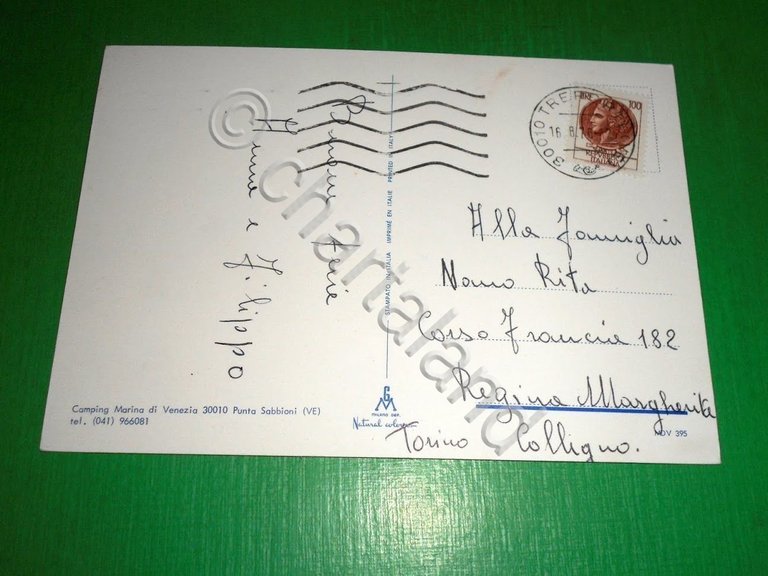 Buone ferie
Anna e Filippo
Camping Marina di Venezia 30010 Punta Sabbioni (VE)
tel. (041) 966081
STAMPATO IN ITALIA IMPRIMÉ EN ITALIE PRINTED IN ITALY
GM
MILANO DEP.
Natural colorcard
LIRE 100
30010 TREPORTI
16.8
Alla Famiglia
Nano Rita
Corso Francia 182
Regina Margherita
Torino Colligno.
MDV 395
© chartaland